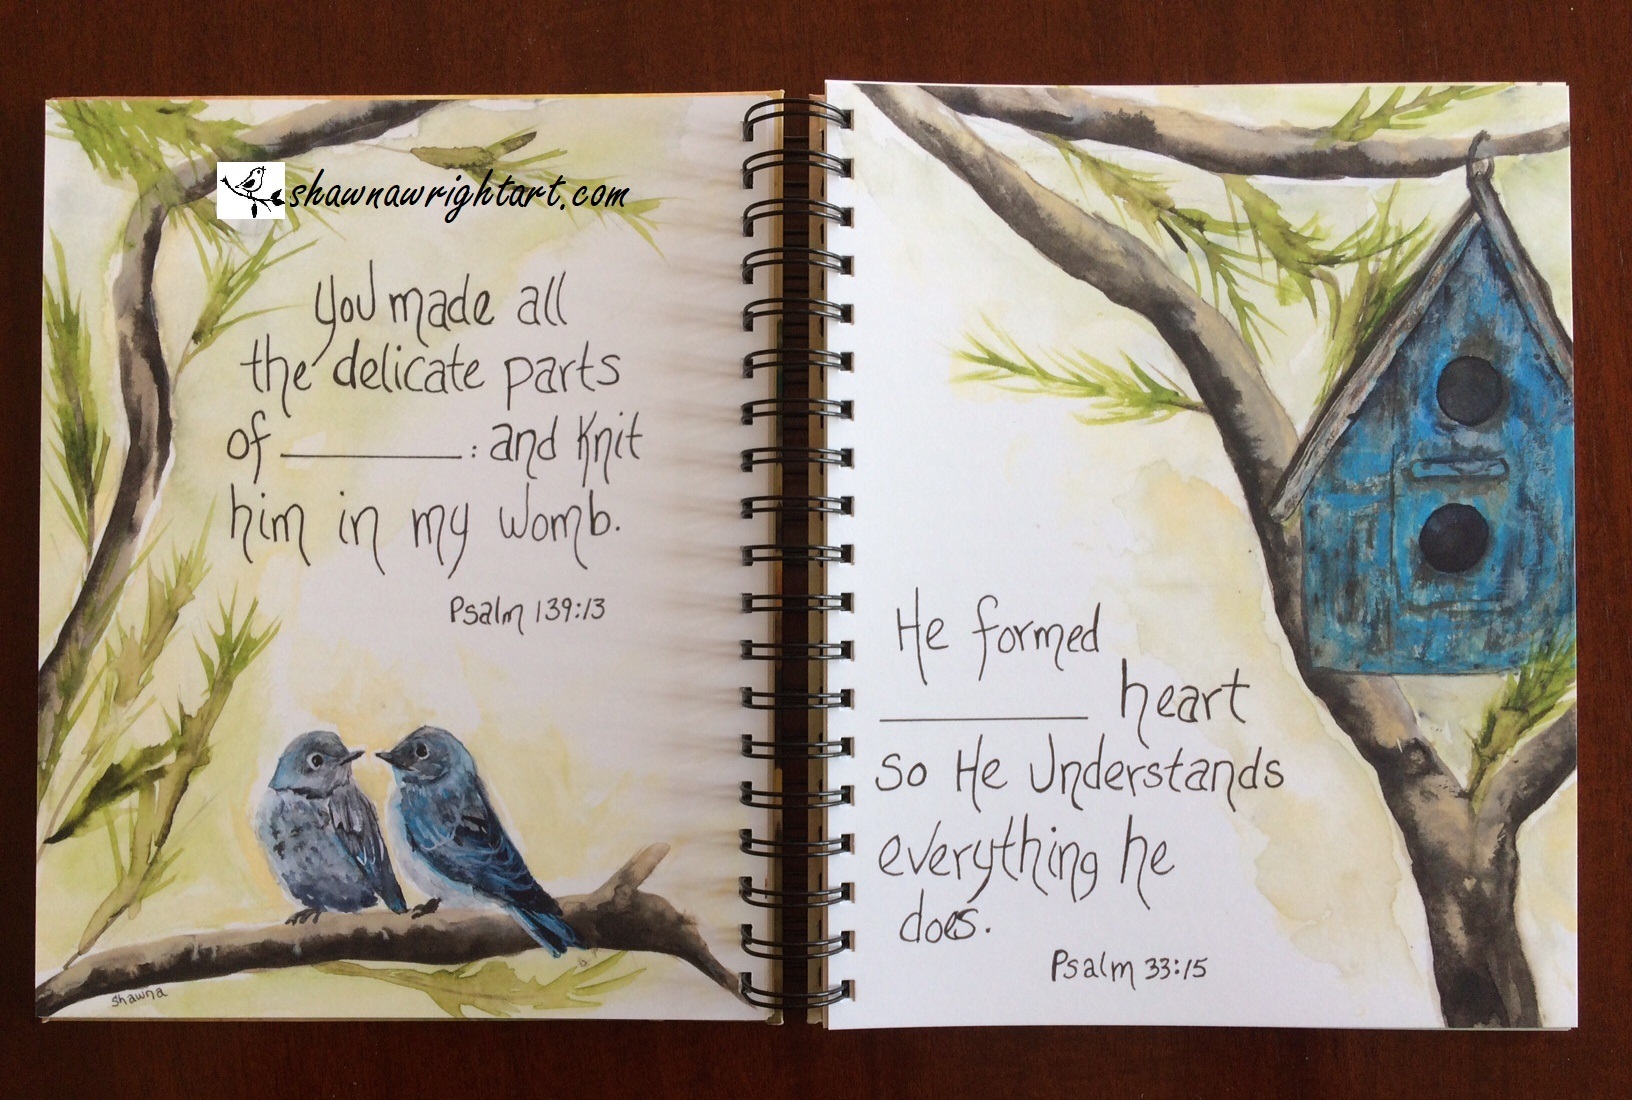 shawnawrightart.com
you made all
the delicate parts
of __________ : and knit
him in my womb.
Psalm 139:13
shawna
He formed
__________ heart
so He Understands
everything he
does.
Psalm 33:15